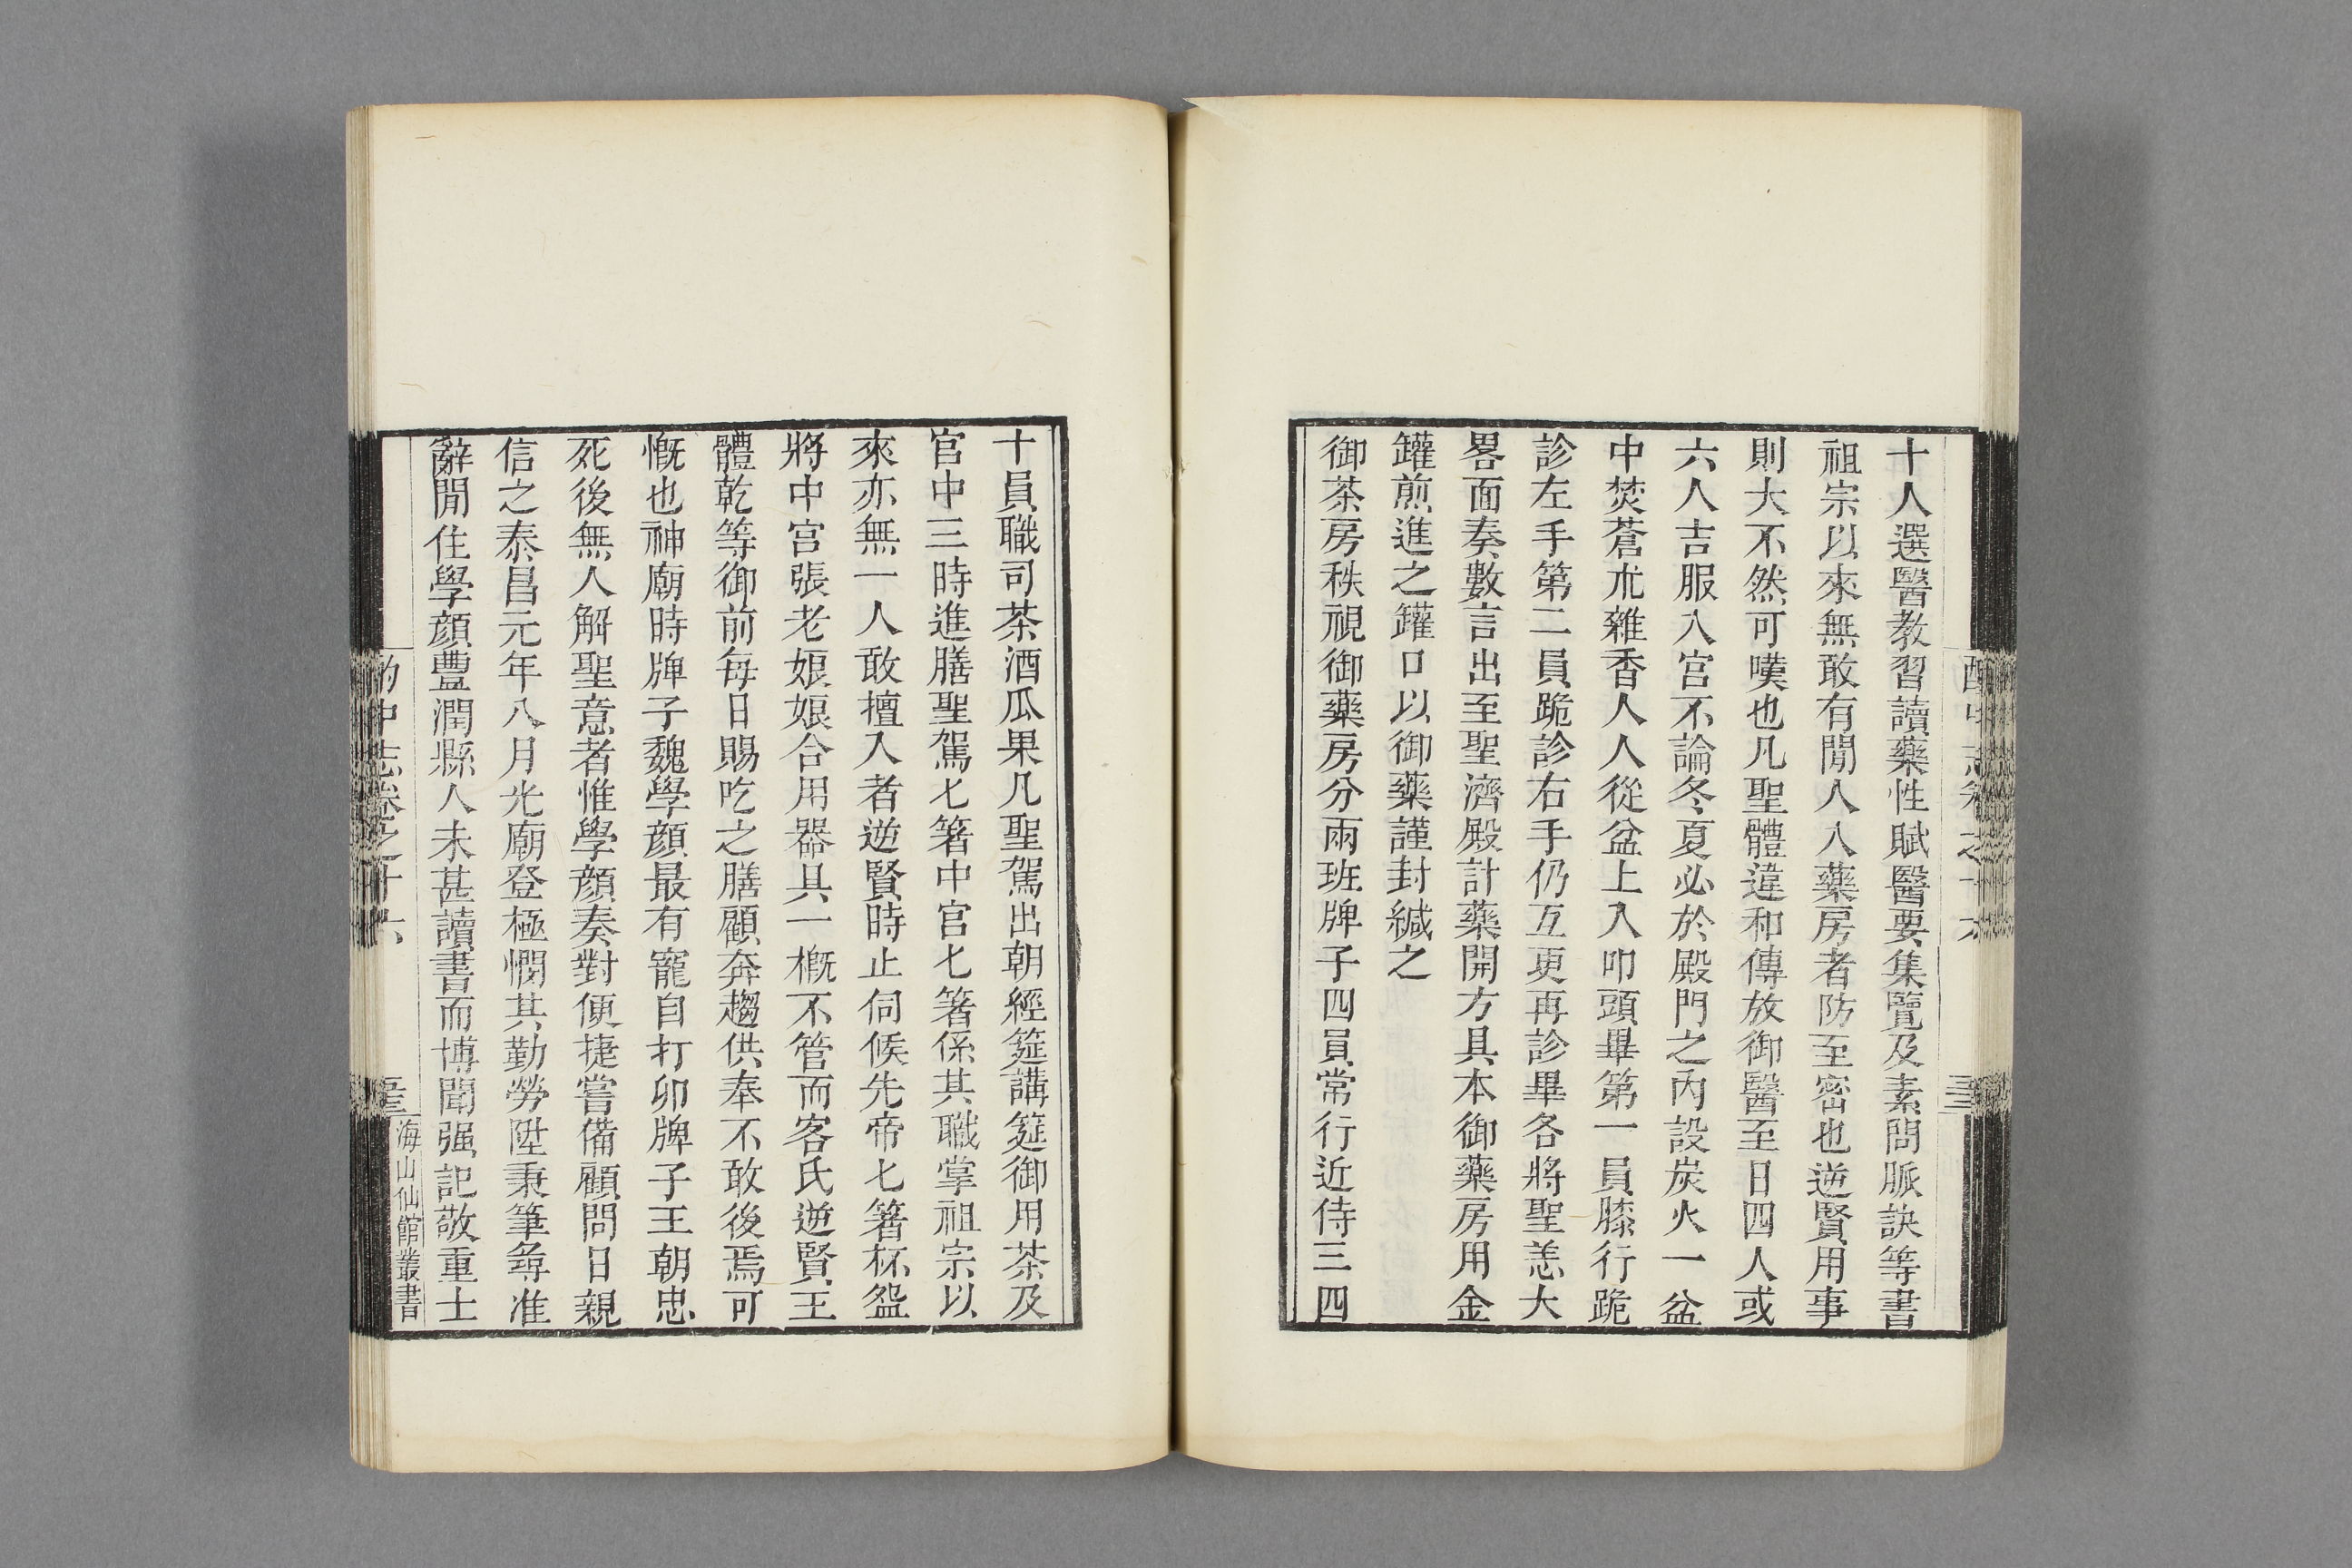 十人選醫教習讀藥性賦醫要集覽及素問脈訣等書
祖宗以來無敢有閒人入藥房者防至密也逆賢用事
則大不然可嘆也凡聖體違和傳放御醫至日四人或
六人吉服入宮不論冬夏必於殿門之內設炭火一盆
中焚蒼朮雜香人人從盆上入叩頭畢第一員膝行跪
診左手第二員跪診右手仍互更再診畢各將聖恙大
畧面奏數言出至聖濟殿計藥開方具本御藥房用金
罐煎進之罐口以御藥謹封緘之
御茶房秩視御藥房分兩班牌子四員常行近侍三四
十員職司茶酒瓜果凡聖駕出朝經筵講筵御用茶及
宮中三時進膳聖駕匕箸中宮匕箸係其職掌祖宗以
來亦無一人敢擅入者逆賢時止伺候先帝匕箸杯盌
將中宮張老娘娘合用器具一槪不管而客氏逆賢王
體乾等御前每日賜吃之膳顧奔趨供奉不敢後焉可
慨也神廟時牌子魏學顔最有寵自打卯牌子王朝忠
死後無人解聖意者惟學顔奏對便捷嘗備顧問日親
信之泰昌元年八月光廟登極憫其勤勞陞秉筆尋准
辭閒住學顔豐潤縣人未甚讀書而博聞强記敬重士
酌中志卷之十六
海山仙館叢書